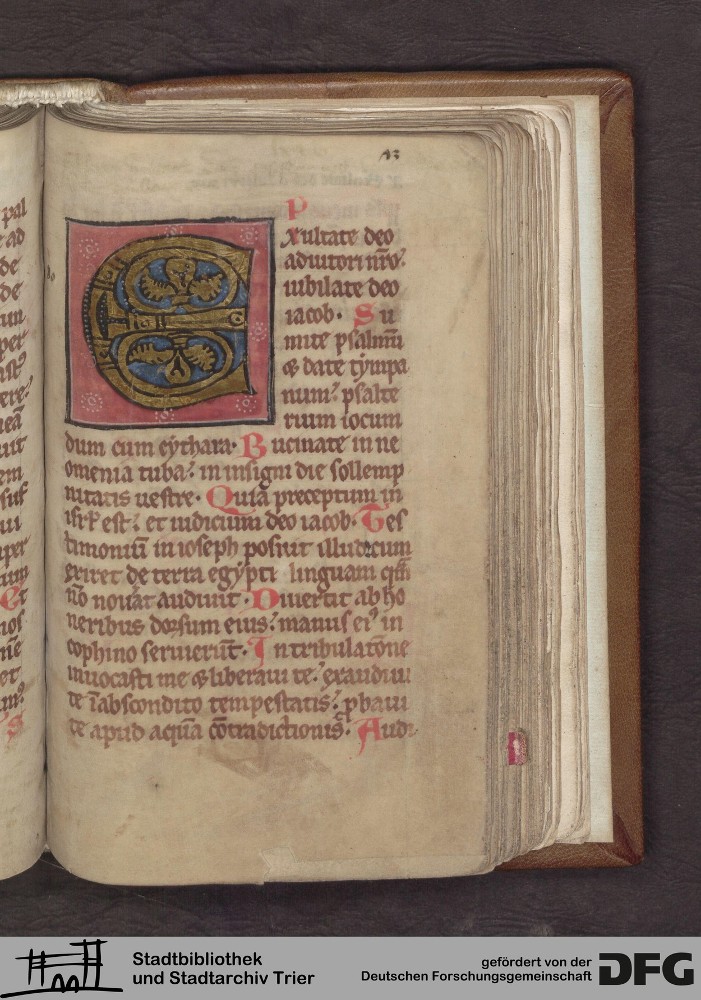 pal
ad
de
de
per
ere
uit
em
suf
ui
per
tum
Et
nos
et
S
P
E xultate deo
adiutori nr̄o.
iubilate deo
iacob. Su
mite psalmū
& date tympa
num? psalte
rium iocum
dum cum cythara. Bucinate in ne
omenia tuba? in insigni die sollemp
nitatis uestre. Quia preceptum in
isrł est? et iudicium deo iacob. Tes
timoniū in ioseph posiuit illud cum
exiret de terra egypti linguam quā
nō nouat audiuit. Diuertit ab ho
neribus dorsum eius? manus eiꝰ in
cophino seruierūt. In tribulatōne
inuocasti me & liberaui te? exaudiui
te ī abscondito tempestatis? ꝓbaui
te apud aquā cōtradictionis. Audi
Stadtbibliothek
und Stadtarchiv Trier
gefördert von der
Deutschen Forschungsgemeinschaft DFG